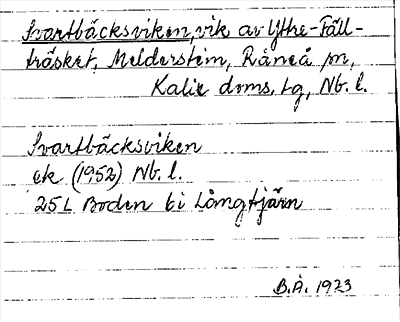 Svartbäcksviken, vik av Yttre-Fäll-
träsket, Melderstein, Råneå sn,
Kalix doms. tg, Nb. l.
Svartbäcksviken
ek (1952) Nb. l.
25L Boden 6i Långtjärn
B.Å. 1923